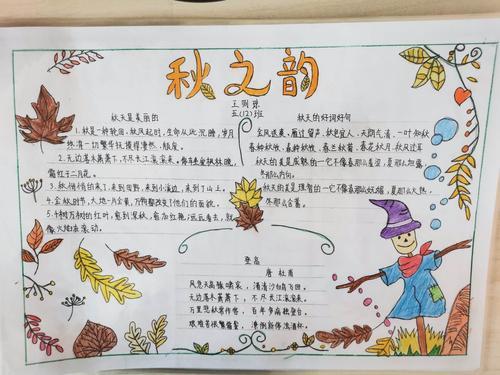 秋之韵
五(12)班
秋天是美丽的
1.秋是一种轮回,秋风起时,生命从此沉睡,岁月
终将一切繁华抚摸得凄然、颓废。
2.无边落木萧萧下,不尽长江滚滚来。停车坐爱枫林晚,
霜红于二月花。
3.秋,悄悄的来了,来到田野,来到小溪边,来到了山上。
4.金秋时节,大地一片金黄,万物都改变了他们的面貌。
像火焰在滚动。
秋天的好词好句
金风送爽、雁过留声、秋色宜人、天朗气清、一叶知秋
春种秋收、春种秋收、春兰秋菊、春花秋月、秋风过耳
秋天的美是成熟的—它不像春那么羞涩,夏那么坦露,
冬那么内向。
秋天的美是理智的—它不像春那么妩媚,夏那么火热,
冬那么含蓄。
登高
唐 杜甫
风急天高猿啸哀,渚清沙白鸟飞回。
无边落木萧萧下,不尽长江滚滚来。
万里悲秋常作客,百年多病独登台。
艰难苦恨繁霜鬓,潦倒新停浊酒杯。